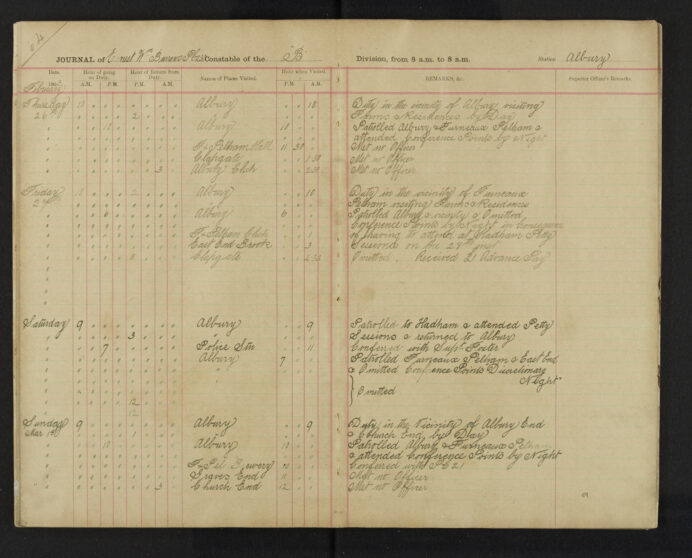 JOURNAL of Constable of the B Division, from 8 a.m. to 8 a.m. Station Albury
Date. Hour of going on Duty. Hour of Return from Duty. Names of Places Visited. Hour when Visited. REMARKS, &c. Superior Officer's Remarks.
A.M. P.M. P.M. A.M. P.M. A.M.
Thursday 10 Albury 10 Duty in the vicinity of Albury visiting
26th 2 Farms & Residences by Day
Albury 10 Patrolled Albury & Furneaux Pelham &
attended Conference Points by Night
Pelham 11 30 Met no Officer
Clapgate 1 30 Met no Officer
3 Albury Chch 2 30 Met no Officer
Friday 10 2 Albury 10 Duty in the vicinity of Furneaux
27th Pelham visiting Farms & Residences
6 Albury 6 Patrolled Albury & vicinity & Omitted
Conference Points by Night in consequence
Pelham Chch of having to attend at Hadham Petty
East End 3 Sessions on the 28th inst
Clapgate Omitted. Received £1 Advance Pay
Saturday 9 Albury 9 Patrolled to Hadham & attended Petty
3 Sessions & returned to Albury
7 Police Stn 11 Conferred with Supt Foster
Albury 7 Patrolled Furneaux Pelham & East End
& Omitted Conference Points Discretionary
Night
Omitted
12
12
Sunday 9 Albury 9 Duty in the Vicinity of Albury End
Mar 1st & Church End by Day
10 Albury 10 Patrolled Albury & Furneaux Pelham
& attended Conference Points by Night
Conferred with
End 11 Met no Officer
3 Church End 12 Met no Officer